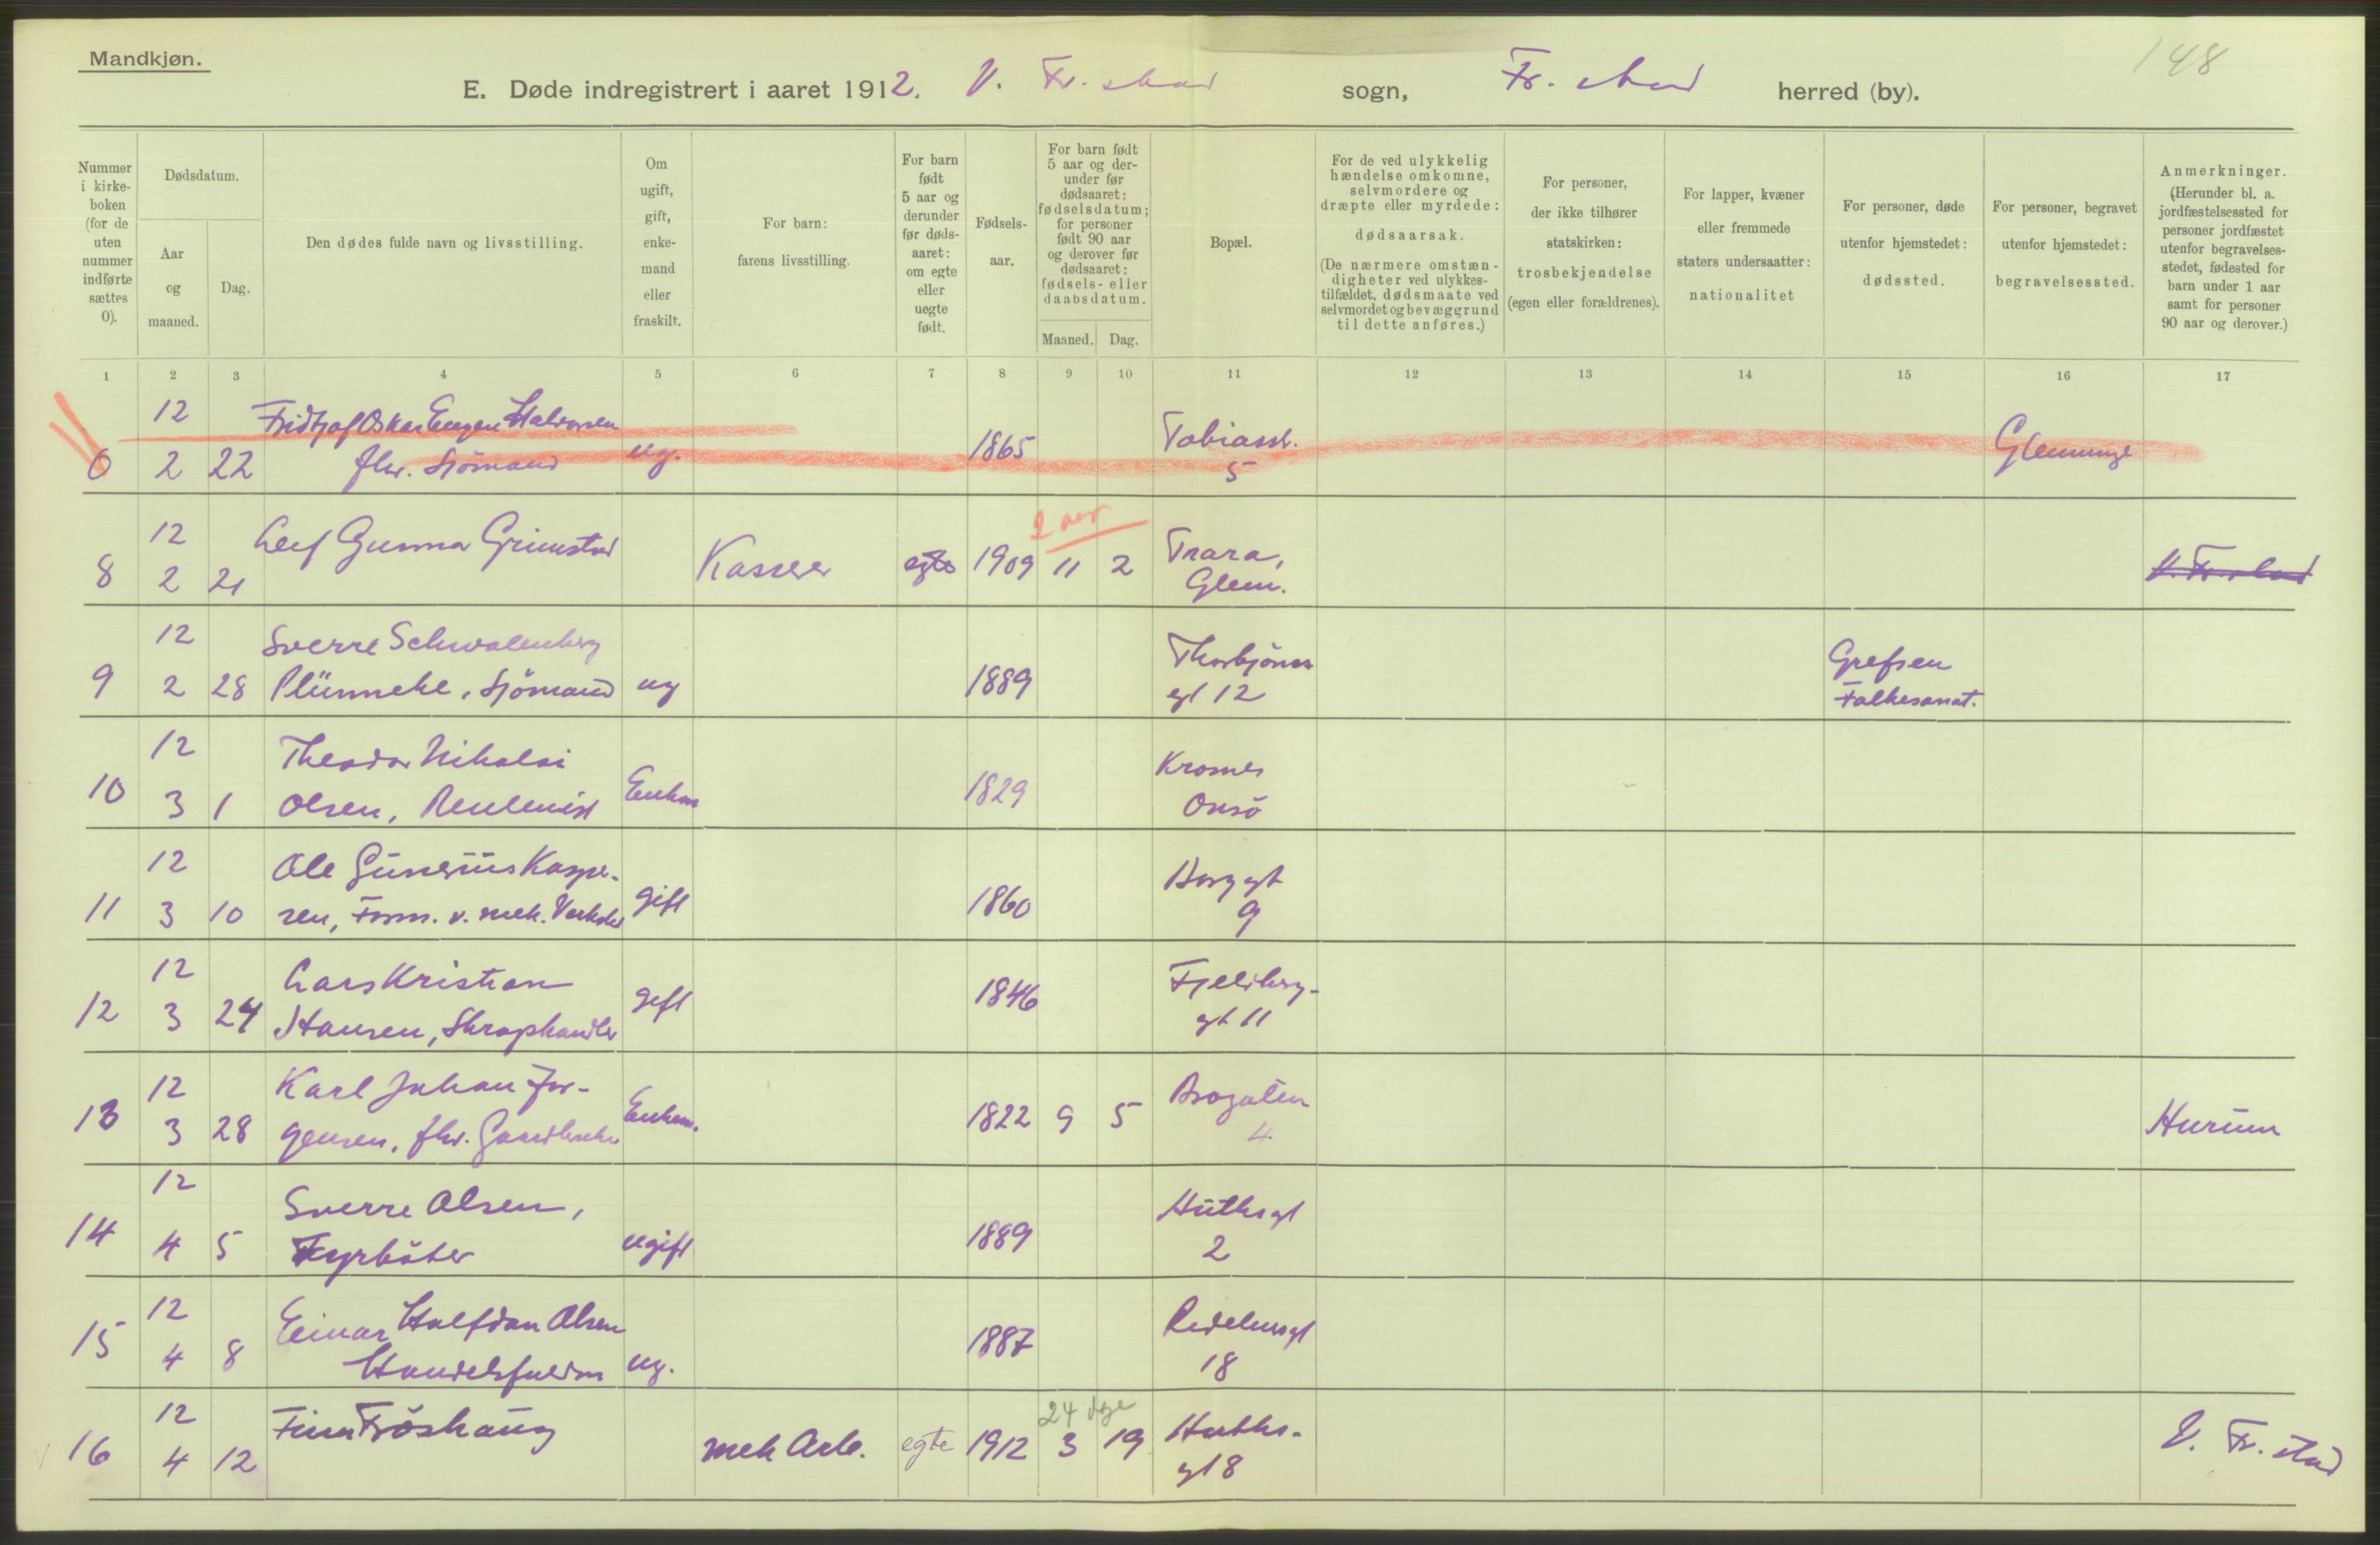 Mandkjøn.
148
E. Døde indregistrert i aaret 1912. V. Fr.stad sogn, Fr.stad herred (by).
Nummer i kirke-boken (for de uten nummer indførte sættes 0).
Dødsdatum.
Aar og maaned.
Dag.
Den dødes fulde navn og livsstilling.
Om ugift, gift, enke-mand eller fraskilt.
For barn: farens livsstilling.
For barn født 5 aar og derunder før døds-aaret: om egte eller uegte født.
Fødsels-aar.
For barn født 5 aar og der-under før dødsaaret: fødselsdatum; for personer født 90 aar og derover før dødsaaret: fødsels- eller daabsdatum.
Maaned. Dag.
Bopæl.
For de ved ulykkelig hændelse omkomne, selvmordere og dræpte eller myrdede: dødsaarsak. (De nærmere omstæn-digheter ved ulykkes-tilfældet, dødsmaate ved selvmordet og bevæggrund til dette anføres.)
For personer, der ikke tilhører statskirken: trosbekjendelse (egen eller forældrenes).
For lapper, kvæner eller fremmede staters undersaatter: nationalitet
For personer, døde utenfor hjemstedet: dødssted.
For personer, begravet utenfor hjemstedet: begravelsessted.
Anmerkninger. (Herunder bl. a. jordfæstelsessted for personer jordfæstet utenfor begravelses-stedet, fødested for barn under 1 aar samt for personer 90 aar og derover.)
1 2 3 4 5 6 7 8 9 10 11 12 13 14 15 16 17
12 Fridtjof Oskar Eugen Halvorsen Tobiasst.
0 2 22 fhv. Sjömand ug. 1865 5 Glemminge
12 Leif Gunnar Grimstad 2 aar Trara,
8 2 21 Kasserer egte 1909 11 2 Glem. V. Fr.stad
12 Sverre Schwalenberg Thorbjörns Grefsen
9 2 28 Plünneke, Sjömand ug 1889 gt 12 Folkesanat.
12 Theodor Nikolai Kromes
10 3 1 Olsen, Rentenist Enkem 1829 Onsö
12 Ole Gunerius Kasper- Borggt
11 3 10 sen, Form. v. mek. Verksted gift 1860 9
12 Lars Kristian Fjeldberg-
12 3 24 Hansen, Skraphandler gift 1846 gt 11
12 Karl Johan Jör- Brogaten
13 3 28 gensen, fhv. Enkem. 1822 9 5 4 Hurum
12 Sverre Olsen, Huthsgt
14 4 5 Fyrböter ugift 1889 2
12 Einar Halfdan Olsen
15 4 8 Handelsfuldm ug. 1887 18
12 Finn Fröshaug 24 dage Huths-
16 4 12 mek Arb. egte 1912 3 19 gt 8 V. Fr.stad